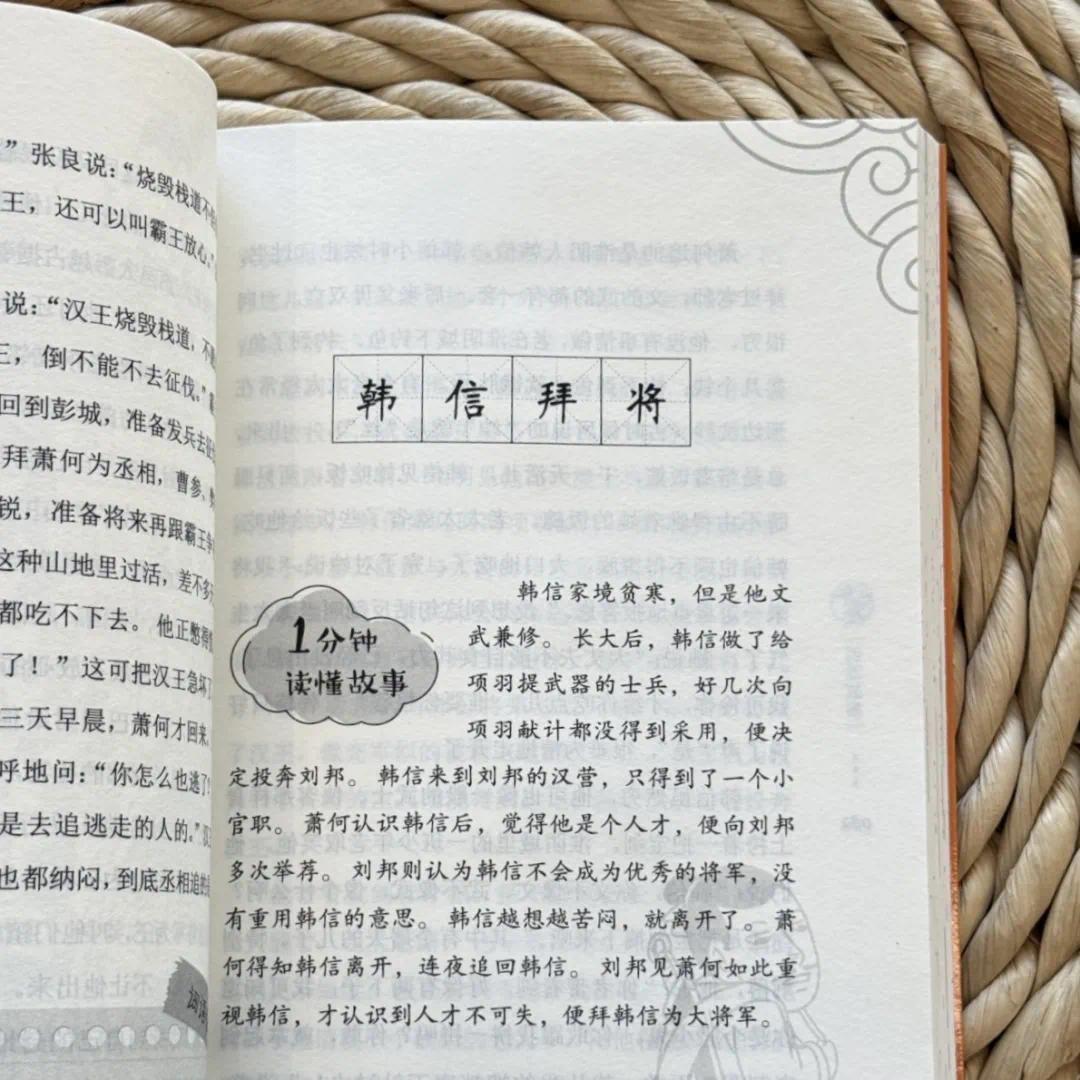 ”张良说：“烧毁栈道不
王，还可以叫霸王放心。
说：“汉王烧毁栈道，不
王，倒不能不去征伐。”
回到彭城，准备发兵去
拜萧何为丞相，曹参、
锐，准备将来再跟霸王
这种山地里过活，差不多
都吃不下去。他正憋得
了！”这可把汉王急坏了
三天早晨，萧何才回来。
呼地问：“你怎么也逃了
是去追逃走的人的。”
也都纳闷，到底丞相追的
韩信拜将
1分钟
读懂故事
韩信家境贫寒，但是他文
武兼修。长大后，韩信做了给
项羽提武器的士兵，好几次向
项羽献计都没得到采用，便决
定投奔刘邦。韩信来到刘邦的汉营，只得到了一个小
官职。萧何认识韩信后，觉得他是个人才，便向刘邦
多次举荐。刘邦则认为韩信不会成为优秀的将军，没
有重用韩信的意思。韩信越想越苦闷，就离开了。萧
何得知韩信离开，连夜追回韩信。刘邦见萧何如此重
视韩信，才认识到人才不可失，便拜韩信为大将军。